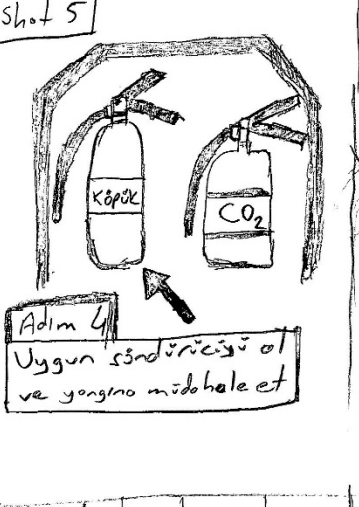 Shot 5
Köpük
CO₂
Adım 4
Uygun söndürücüyü al
ve yangına müdahale et